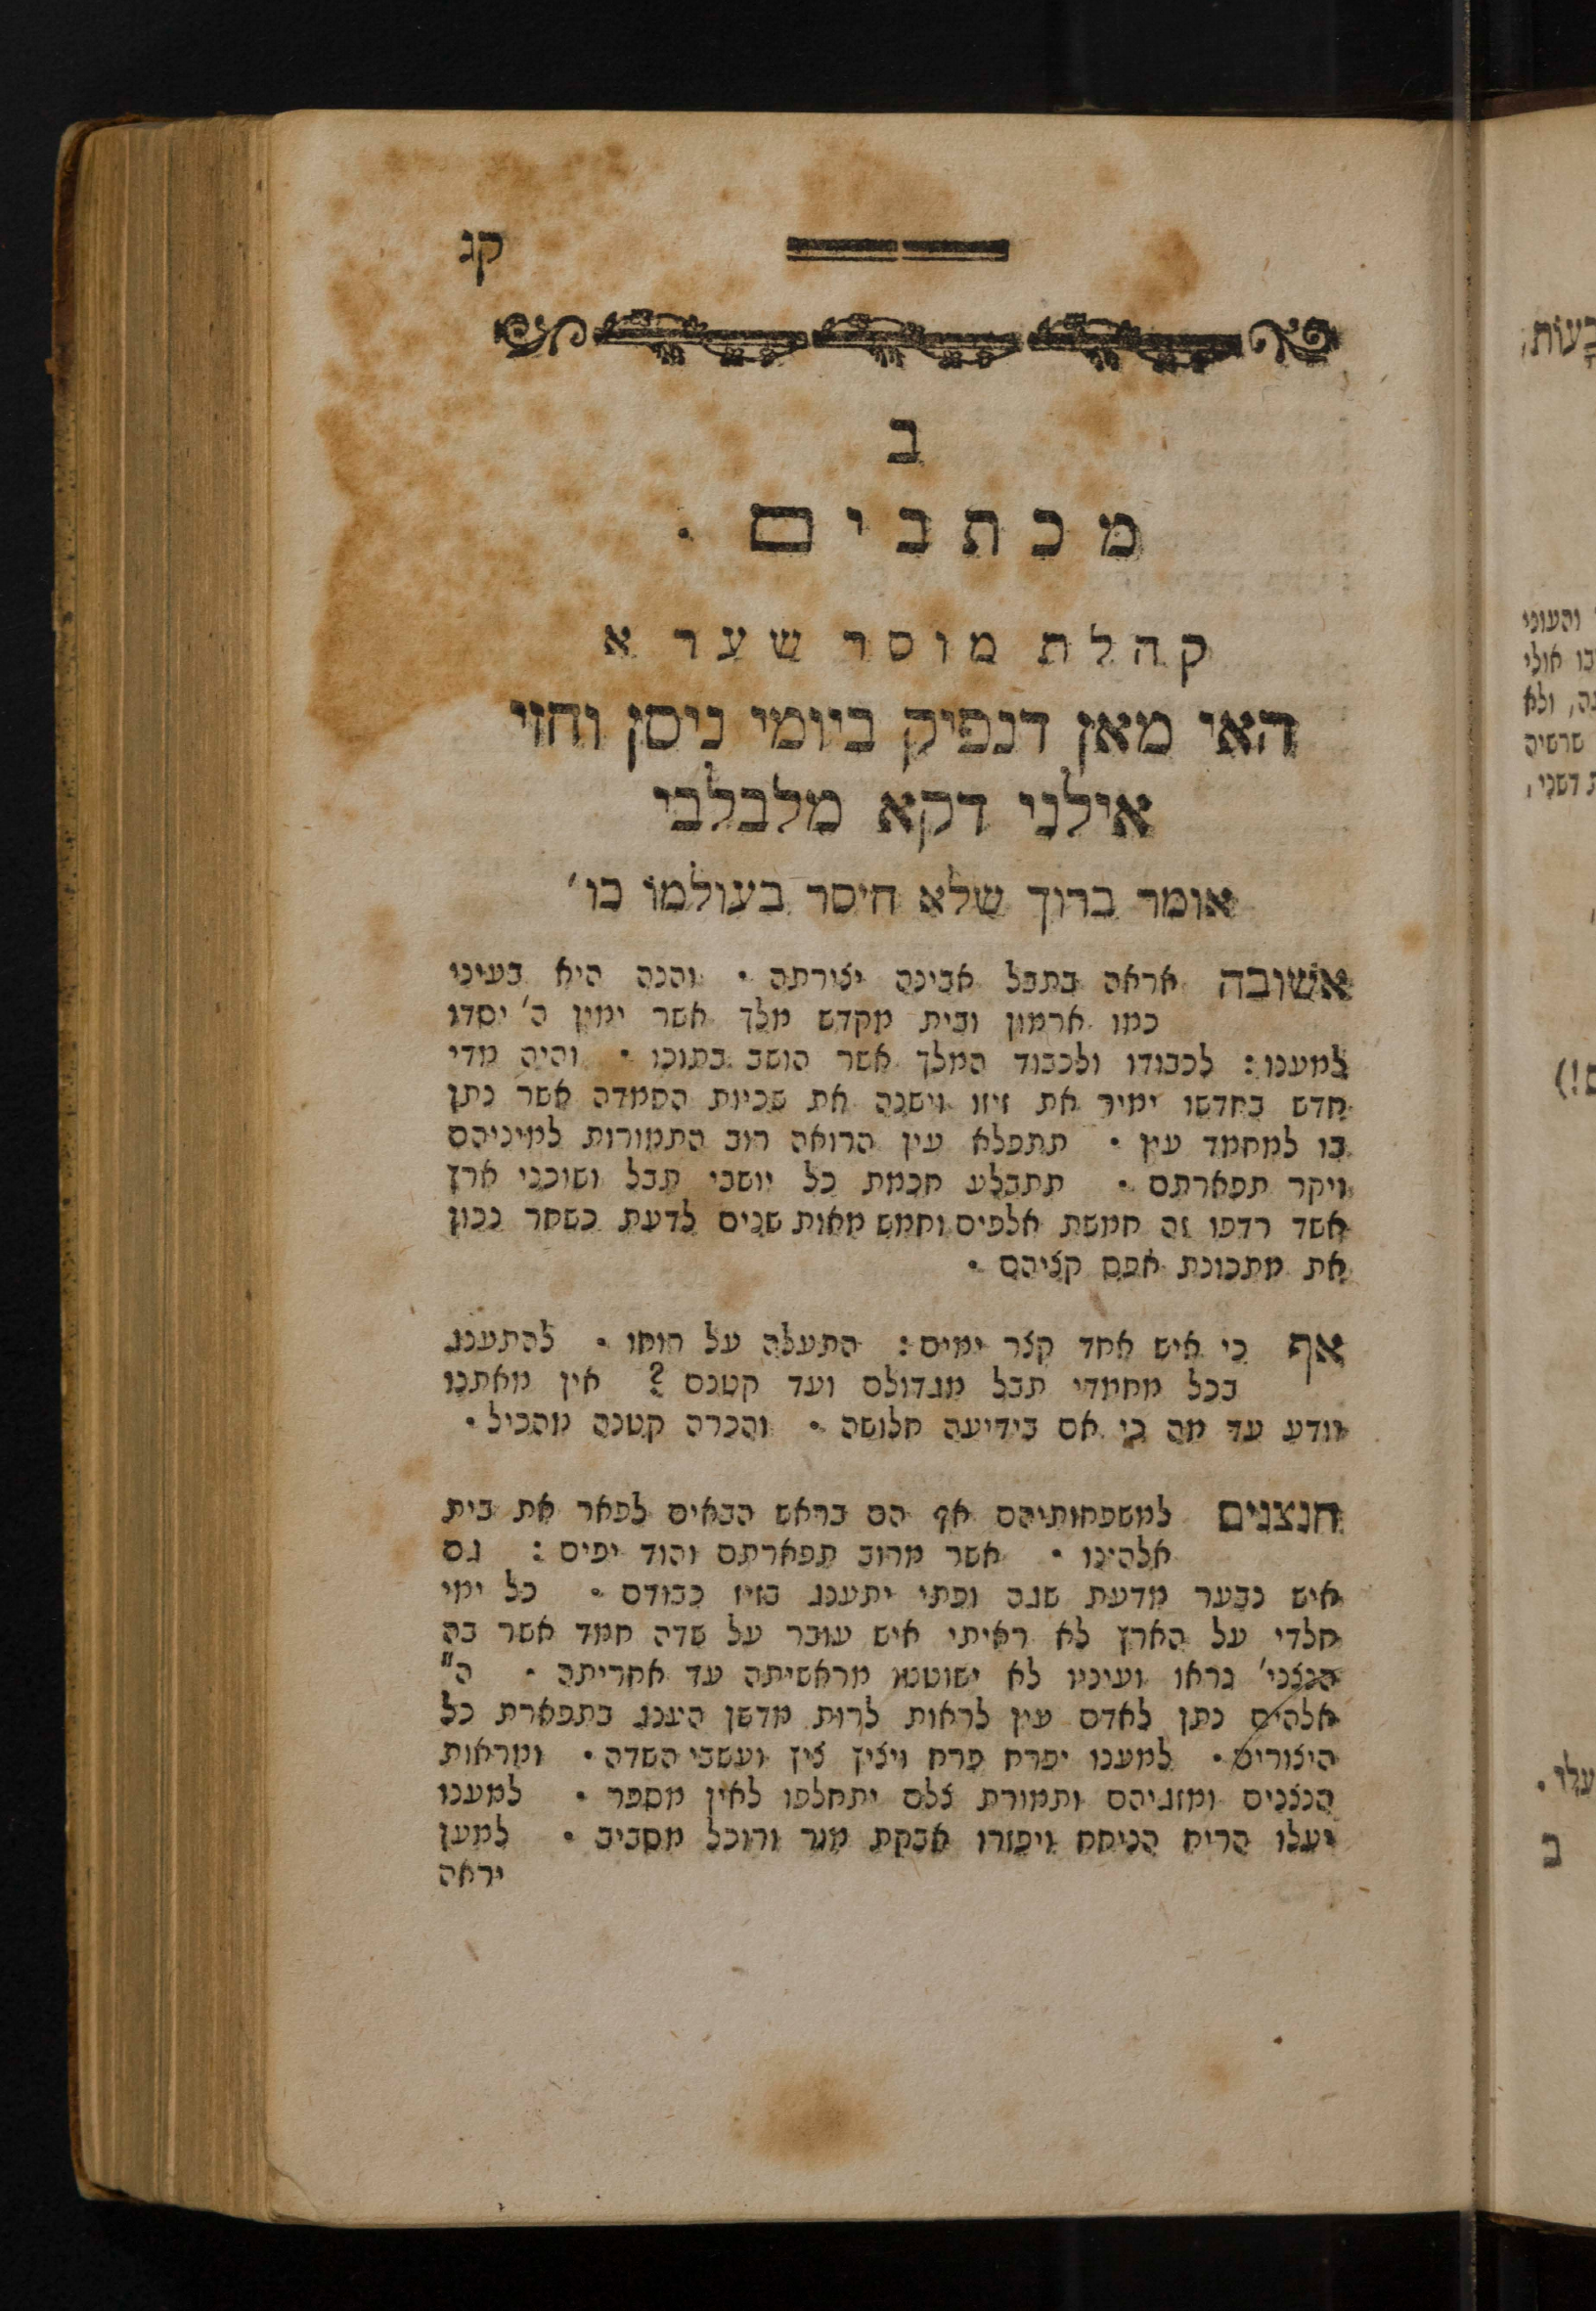 קג
ב
מכתבים .
קהלת מוסר שער א
האי מאן דנפיק ביומי ניסן וחזי
אילני דקא מלבלבי
אומר ברוך שלא חיסר בעולמו כו'
אשובה אראה בתבל אבינה יצירתה . והנה היא בעיני
כמו ארמון ובית מקדש מלך אשר ימין ה' יסדו
למענו : לכבודו ולכבוד המלך אשר הושב בתוכו . והיה מדי
חדש בחדשו ימיר את זיוו וישנה את שכיות החמדה אשר נתן
בו למחמד עין . תתפלא עין הרואה רוב התמורות למיניהם
ויקר תפארתם . תתבלע חכמת כל יושבי תבל ושוכני ארץ
אשר רדפו זה חמשת אלפים וחמש מאות שנים לדעת כשחר נכון
את מתכונת אפס קציהם .
אף כי איש אחד קצר ימים : התעלה על רוחו . להתענג
בכל מחמדי תבל מגדולם ועד קטנם ? אין מאתנו
יודע עד מה כי אם בידיעה חלושה . והכרה קטנה מהכיל .
הנצנים למשפחותיהם אף הם בראש הבאים לפאר את בית
אלהינו . אשר מרוב תפארתם והוד יפים : גם
איש נבער מדעת שגה ופתי יתענג בזיו כבודם . כל ימי
חלדי על הארץ לא ראיתי איש עובר על שדה חמד אשר בה
הנצני' נראו ועיניו לא ישוטטו מראשיתה עד אחריתה . ה"
אלהים נתן לאדם עין לראות לרות מדשן היענג בתפארת כל
היצורים . למענו יפרח פרח ויציץ ציץ ועשבי השדה . ומראות
הנצנים ומזגיהם ותמורת צלם יתחלפו לאין מספר . למענו
יעלו הריח הניחח ויפזרו אבקת מור ורוכל מסביב . למען
יראה
ב